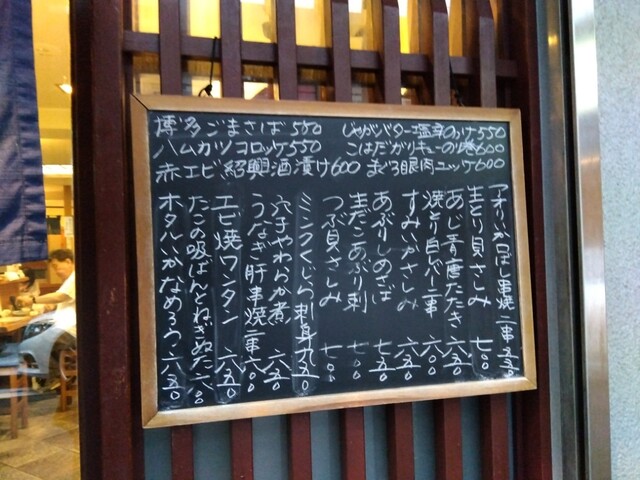 博多ごまさば550
じゃがバター塩辛のっけ550
ハムカツコロッケ550
こはだガリキューのり巻600
赤エビ紹興酒漬け600
まぐろ眼肉ユッケ600
アオリイカ一口ぼし串焼二本五五〇
生とり貝さしみ 七〇〇
あじ青唐たたき 六五〇
焼とり白レバー二本 六〇〇
すみいかさしみ 六五〇
あぶりしめさば 七五〇
生だこあぶり刺 七〇〇
つぶ貝さしみ 七〇〇
ミンクくじら刺身九五〇
穴子やわらか煮 六五〇
うなぎ肝串焼二本六〇〇
エビ焼ワンタン 六五〇
たこの吸ばんとねぎぬた六〇〇
ホタルイカなめろう 六五〇